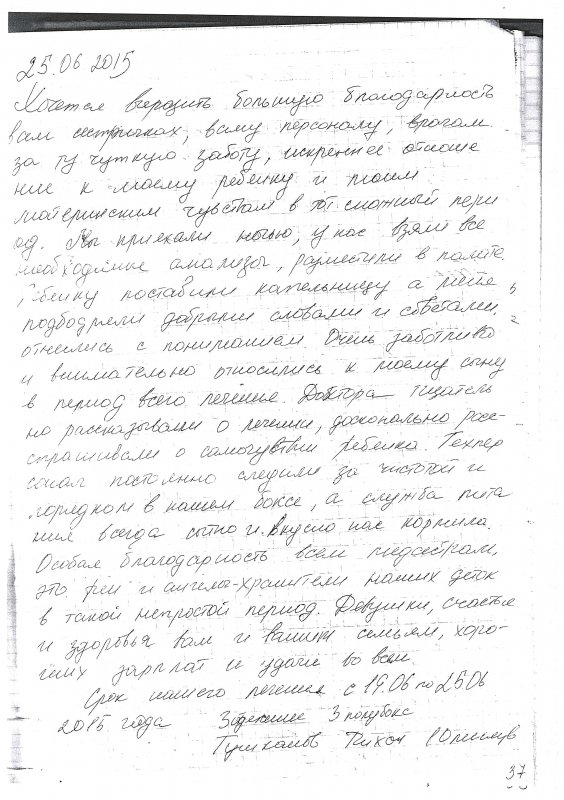 25.06 2015
Хочется выразить большую благодарность
вам сестричкам, всему персоналу, врачам
за ту чуткую заботу, искреннее отноше
ние к моему ребенку и моим
материнским чувствам в тот сложный пери
од. Мы приехали ночью, у нас взяли все
необходимые анализы, разместили в палате,
ребенку поставили капельницу а меня
подбодрили добрыми словами и советами,
отнеслись с пониманием. Очень заботливо
и внимательно относились к моему сыну
в период всего лечения. Доктора тщатель
но рассказывали о лечении, досконально рас-
спрашивали о самочувствии ребенка. Техпер
сонал постоянно следили за чистотой и
порядком в нашем боксе, а служба пита
ния всегда сытно и вкусно нас кормила.
Особая благодарность всем медсестрам,
это феи и ангелы-хранители наших деток
в такой непростой период. Девушки, счастье
и здоровья вам и вашим семьям, хоро-
ших зарплат и удачи во всем.
Срок нашего лечения с 19.06 по 25.06
2015 года 3 отделение 3 полубокс
Тихон
37